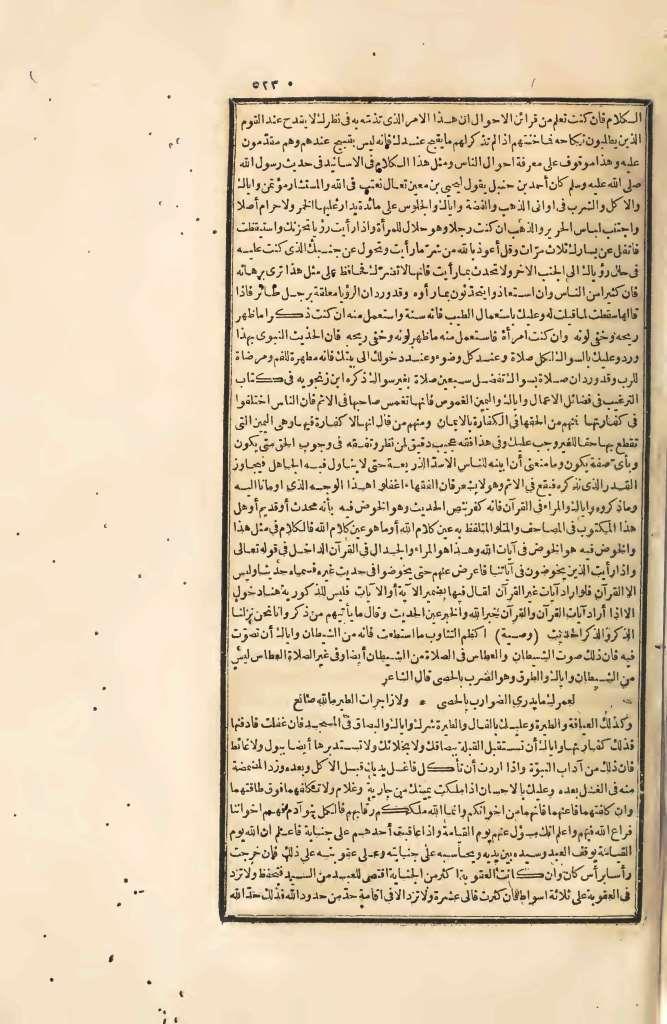 ٥٢٣
الكلام فان كنت تعلم من قرائن الاحوال ان هذا الامر الذى تذمه به فى نظرك لا يقدح عند القوم
الذين يطلبون نكاحه فما خنتهم اذا لم تذكر لهم ما يقبح عندك فانه ليس بقبيح عندهم وهم مقدمون
عليه وهذا موقوف على معرفة احوال الناس ومثل هذا الكلام فى الاسانيد فى حديث رسول الله
صلى الله عليه وسلم كان أحمد بن حنبل يقول ليحيى بن معين تعال نغتب فى الله والمستشار مؤتمن واياك
والاكل والشرب فى اوانى الذهب والفضة واياك والجلوس على مائدة يدار عليها الخمر ولا حرام أصلا
واجتنب لباس الحرير والذهب ان كنت رجلا وهو حلال للمرأة واذا رأيت رؤيا تحزنك واستيقظت
فاتفل عن يسارك ثلاث مرات وقل أعوذ بالله من شر ما رأيت وتحول عن جنبك الذى كنت عليه
فى حال رؤياك الى الجنب الآخر ولا تحدث بما رأيت فانها لا تضرك فحافظ على مثل هذا ترى برهانه
فان كثيرا من الناس وان استعاذوا يتحدثون بما رأوه وقد ورد ان الرؤيا معلقة برجل طائر فاذا
قالها سقطت لما قيلت له وعليك باستعمال الطيب فانه سنة واستعمل منه ان كنت ذكرا ما ظهر
ريحه وخفى لونه وان كنت امرأة فاستعمل منه ما ظهر لونه وخفى ريحه فان الحديث النبوى بهذا
ورد وعليك بالسواك لكل صلاة وعند كل وضوء وعند دخولك الى بيتك فانه مطهرة للفم ومرضاة
للرب وقد ورد ان صلاة بسواك تفضل سبعين صلاة بغير سواك ذكره ابن زنجويه فى كتاب
الترغيب فى فضائل الاعمال واياك واليمين الغموس فانها تغمس صاحبها فى الاثم فان الناس اختلفوا
فى كفارتها فمنهم من الحقها فى الكفارة بالايمان ومنهم من قال انها لا كفارة فيها وهى اليمين التى
تقطع بها حقا للغير وجب عليك وفى هذا فقه عجيب دقيق لمن نظر وتفقه فى وجوب الحق متى يكون
وبأى صفة يكون وما منعنى أن أبينه للناس الاسد الذريعة حتى لا يتأول فيه الجاهل فيجاوز
القدر الذى نذكره فيقع فى الاثم وهو لا يشعر فان الفقهاء اغفلوا هذا الوجه الذى أومأنا اليه
وما ذكروه واياك والمراء فى القرآن فانه كفر بنص الحديث وهو الخوض فيه بأنه محدث أو قديم أو هل
هذا المكتوب فى المصاحف والمتلو المتلفظ به عين كلام الله أو ما هو عين كلام الله فالكلام فى مثل هذا
والخوض فيه هو الخوض فى آيات الله وهذا هو المراء والجدال فى القرآن الداخل فى قوله تعالى
واذا رأيت الذين يخوضون فى آياتنا فأعرض عنهم حتى يخوضوا فى حديث غيره فسماه حديثا وليس
الا القرآن فلو اراد آيات غير القرآن لقال فيها بضمير الآية أو الآيات فليس للذكورية هنا دخول
الا اذا أراد آيات القرآن والقرآن خبر الله والخبر عين الحديث وقال ما يأتيهم من ذكر وانا نحن نزلنا
الذكر والذكر الحديث (وصية) اكظم التثاوب ما استطعت فانه من الشيطان واياك أن تصوت
فيه فان ذلك صوت الشيطان والعطاس فى الصلاة من الشيطان أيضا وفى غير الصلاة العطاس ليس
من الشيطان واياك والطرق وهو الضرب بالحصى قال الشاعر
لعمرك ما يدرى الضوارب بالحصى * ولا زاجرات الطير ما الله صانع
وكذلك العيافة والطيرة وعليك بالفال والطيرة شرك واياك والبصاق فى المسجد فان غفلت فادفنها
فذلك كفارتها واياك أن تستقبل القبلة ببصاقك ولا بخلائك ولا تستدبرها أيضا ببول ولا غائط
فان ذلك من آداب النبوة واذا اردت أن تأكل فاغسل يديك قبل الاكل وبعده وزد المضمضة
منه فى الغسل بعده وعليك بالاحسان اذا ملكت يمينك من جارية وغلام ولا تكلفهما فوق طاقتهما
وان كلفتهما فأعنهما فانهما من اخوانكم وانما الله ملككم رقابهم فالكل بنو آدم فهم اخواننا
فراع الله فيهم واعلم انك مسؤل عنهم يوم القيامة واذا عاقبت أحدهم على جناية فاعلم ان الله يوم
القيامة يوقف العبد وسيده بين يديه ويحاسبه على جنايته وعلى عقوبته على ذلك فان خرجت
رأسا برأس كان وان كانت العقوبة اكثر من الجناية اقتص للعبد من السيد فتحفظ ولا تزد
فى العقوبة على ثلاثة اسواط فان كثرت فالى عشرة ولا تزد الا فى اقامة حد من حدود الله فذلك حد الله